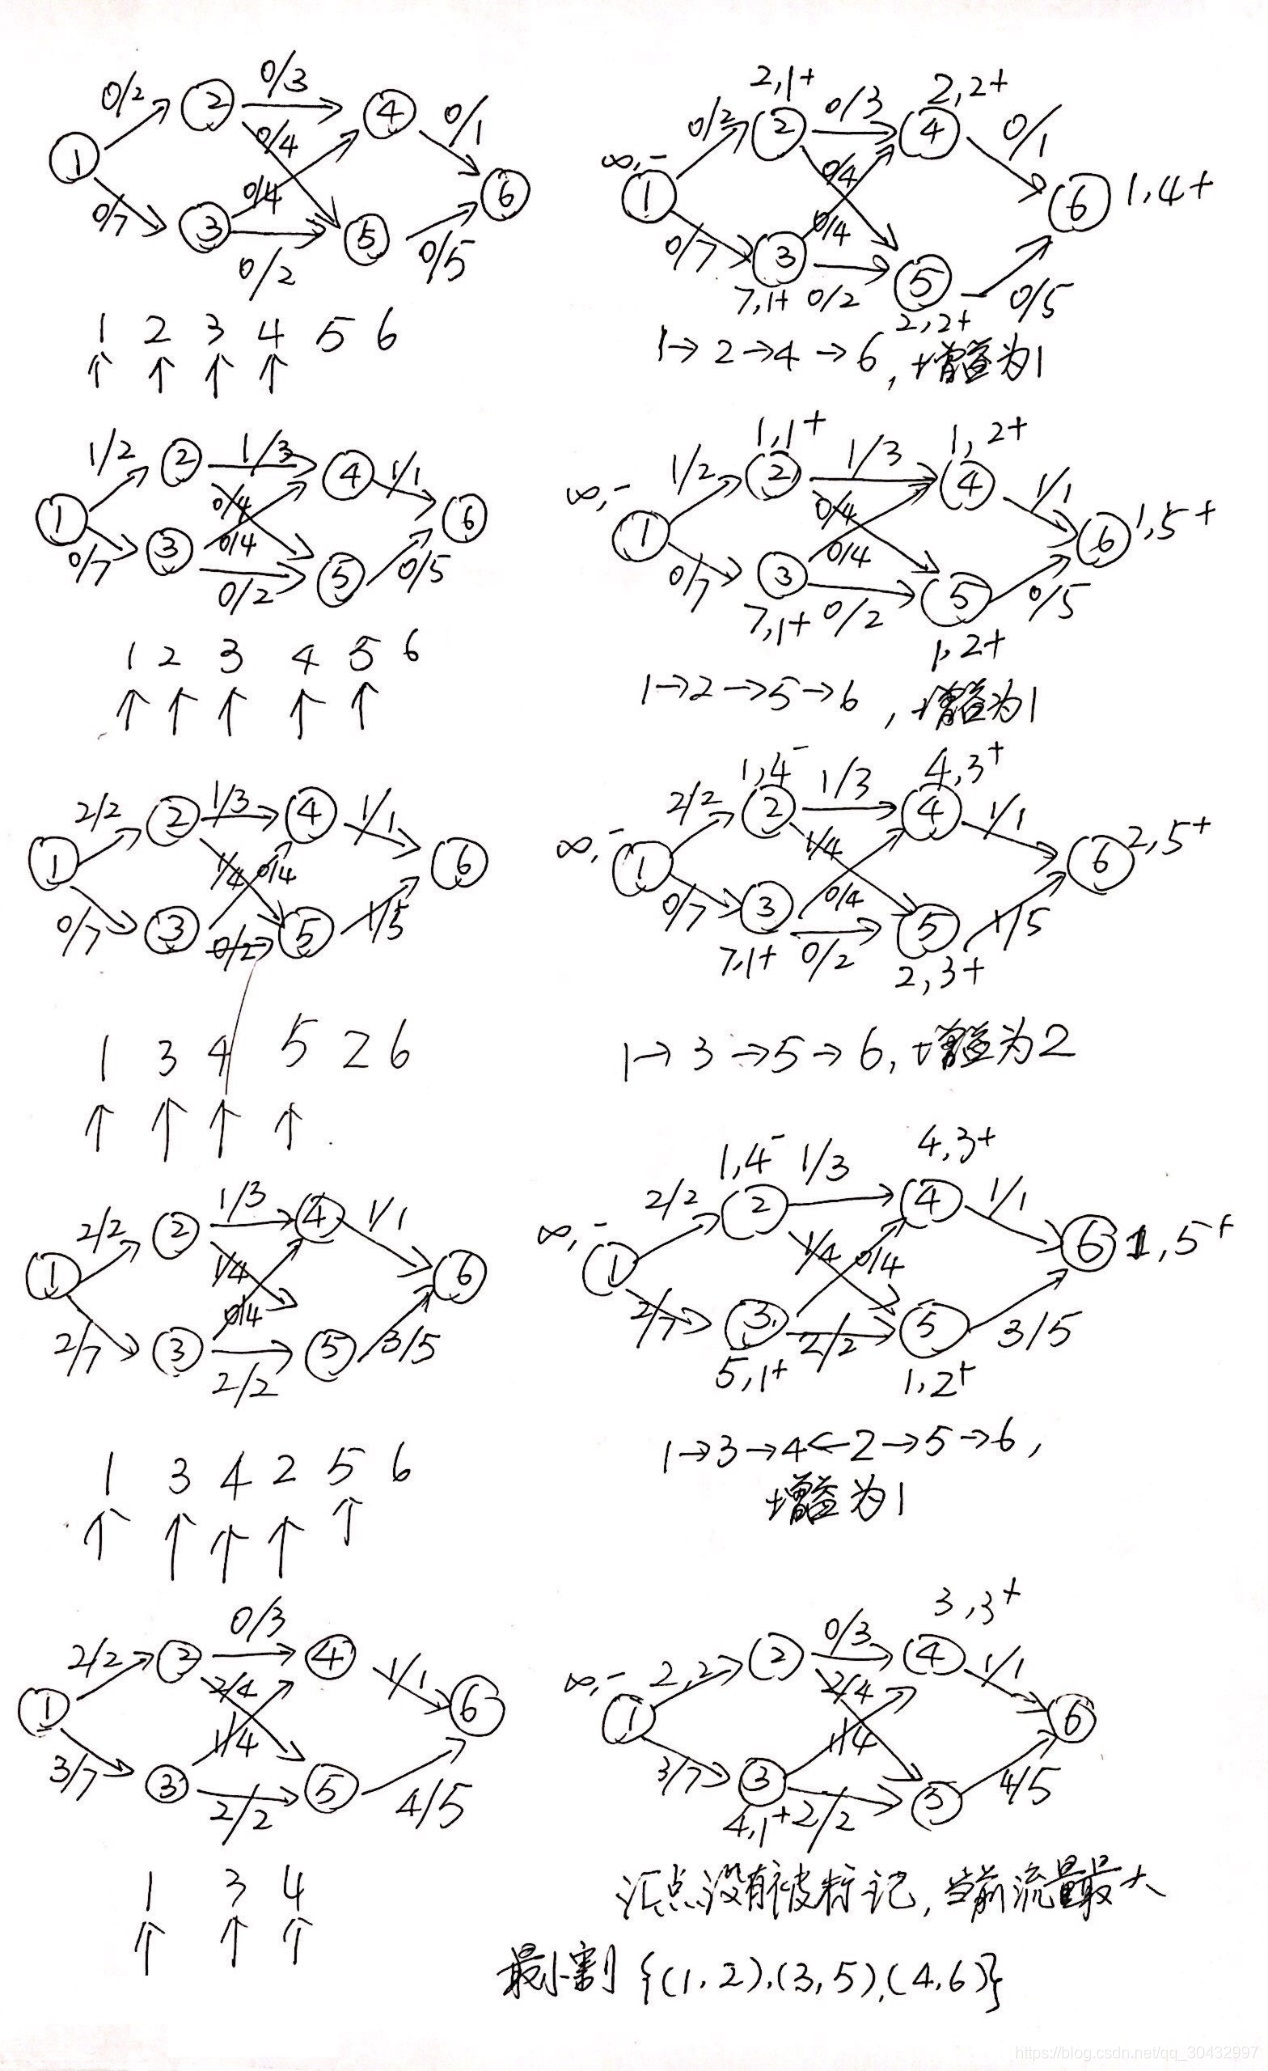 0/2 ② 0/3 ④ 0/1
① 0/4 ⑥
0/7 ③ 0/4 ⑤ 0/5
0/2
1 2 3 4 5 6
↑ ↑ ↑ ↑
2,1+ 2,2+
0/2 ② 0/3 ④ 0/1
∞,- ① 0/4 ⑥ 1,4+
0/7 ③ 0/4 ⑤ 0/5
7,1+ 0/2 2,2+
1→2→4→6,增益为1
1/2 ② 1/3 ④ 1/1
① 0/4 ⑥
0/7 ③ 0/4 ⑤ 0/5
0/2
1 2 3 4 5 6
↑ ↑ ↑ ↑ ↑
1,1+ 1,2+
1/2 ② 1/3 ④ 1/1
∞,- ① 0/4 ⑥ 1,5+
0/7 ③ 0/4 ⑤ 0/5
7,1+ 0/2 1,2+
1→2→5→6,增益为1
2/2 ② 1/3 ④ 1/1
① 1/4 0/4 ⑥
0/7 ③ 0/2 ⑤ 1/5
1 3 4 5 2 6
↑ ↑ ↑ ↑
1,4- 4,3+
2/2 ② 1/3 ④ 1/1
∞,- ① 1/4 ⑥ 2,5+
0/7 ③ 0/4 ⑤ 1/5
7,1+ 0/2 2,3+
1→3→5→6,增益为2
2/2 ② 1/3 ④ 1/1
① 1/4 ⑥
2/7 ③ 0/4 ⑤ 3/5
2/2
1 3 4 2 5 6
↑ ↑ ↑ ↑ ↑
1,4- 4,3+
2/2 ② 1/3 ④ 1/1
∞,- ① 1/4 0/4 ⑥ 1,5+
2/7 ③ 2/2 ⑤ 3/5
5,1+ 1,2+
1→3→4←2→5→6,
增益为1
2/2 ② 0/3 ④ 1/1
① 2/4 ⑥
3/7 ③ 1/4 ⑤ 4/5
2/2
1 3 4
↑ ↑ ↑
3,3+
2,2 ② 0/3 ④ 1/1
∞,- ① 2/4 ⑥
3/7 ③ 1/4 ⑤ 4/5
4,1+ 2/2
汇点没有被标记,当前流量最大
最小割{(1,2),(3,5),(4,6)}
https://blog.csdn.net/qq_30432997